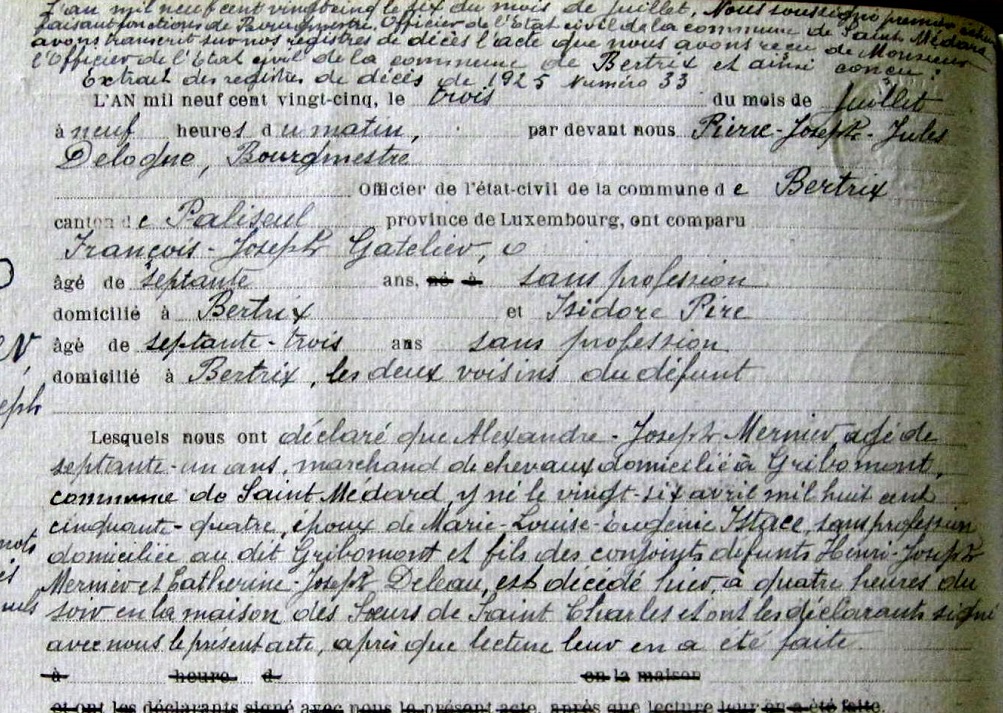 L'an mil neuf cent vingt cinq le six du mois de juillet, Nous soussigné premier échevin
faisant fonctions de Bourgmestre Officier de l'Etat civil de la commune de Saint Médard
avons transcrit sur nos registres de décès l'acte que nous avons reçu de Monsieur
l'Officier de l'Etat civil de la commune de Bertrix et ainsi conçu :
Extrait des registres de décès de 1925 Numéro 33
L'AN mil neuf cent vingt-cinq, le trois du mois de juillet
à neuf heures du matin, par devant nous Pierre-Joseph-Jules
Delogne, Bourgmestre
Officier de l'état-civil de la commune de Bertrix
canton de Paliseul province de Luxembourg, ont comparu
François-Joseph Gatelier,
âgé de septante ans, né à sans profession
domicilié à Bertrix et Isidore Pire
âgé de septante-trois ans sans profession
domicilié à Bertrix, les deux voisins du défunt
eph
Lesquels nous ont déclaré que Alexandre-Joseph Mernier, agé de
septante-un ans, marchand de chevaux domicilié à Gribomont,
commune de Saint Médard, y né le vingt-six avril mil huit cent
cinquante-quatre, époux de Marie-Louise-Eugénie Istace sans profession
domiciliée au dit Gribomont et fils des conjoints défunts Henri-Joseph
Mernier et Catherine-Joseph Deleau, est décédé hier, à quatre heures du
soir en la maison des Sœurs de Saint Charles et ont les déclarants signé
avec nous le présent acte, après que lecture leur en a été faite.
à heure d en la maison
et ont les déclarants signé avec nous le présent acte, après que lecture leur en a été faite.